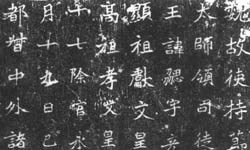 魏故使持節
太師領司徒
王諱勰字彥
顯祖獻文皇
高祖孝文皇
十七除官永
月十九日己
都督中外諸